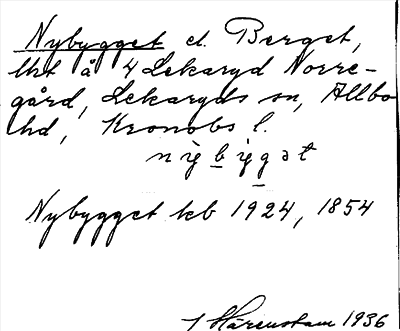 Nybygget el. Berget,
lht å 4 Lekaryd Norre-
gård, Lekaryds sn, Allbo
hd, Kronobs l.
nybygət
Nybygget kb 1924, 1854
Härenstam 1936